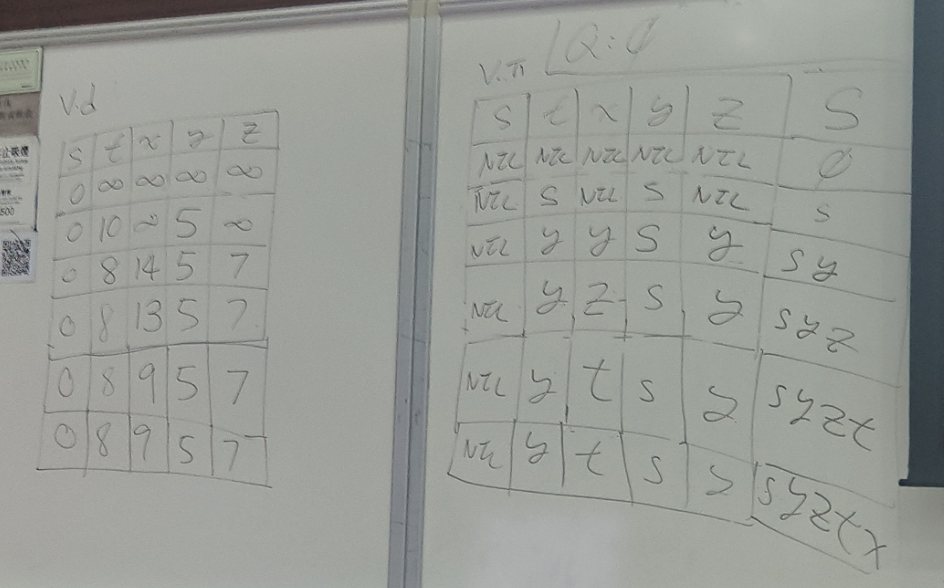 V.d
s t x y z
0 ∞ ∞ ∞ ∞
0 10 ∞ 5 ∞
0 8 14 5 7
0 8 13 5 7
0 8 9 5 7
0 8 9 5 7
V.π
s t x y z S
NIL NIL NIL NIL NIL ∅
NIL s NIL s NIL s
NIL y y s y sy
NIL y z s y syz
NIL y t s y syzt
NIL y t s y syztx
500